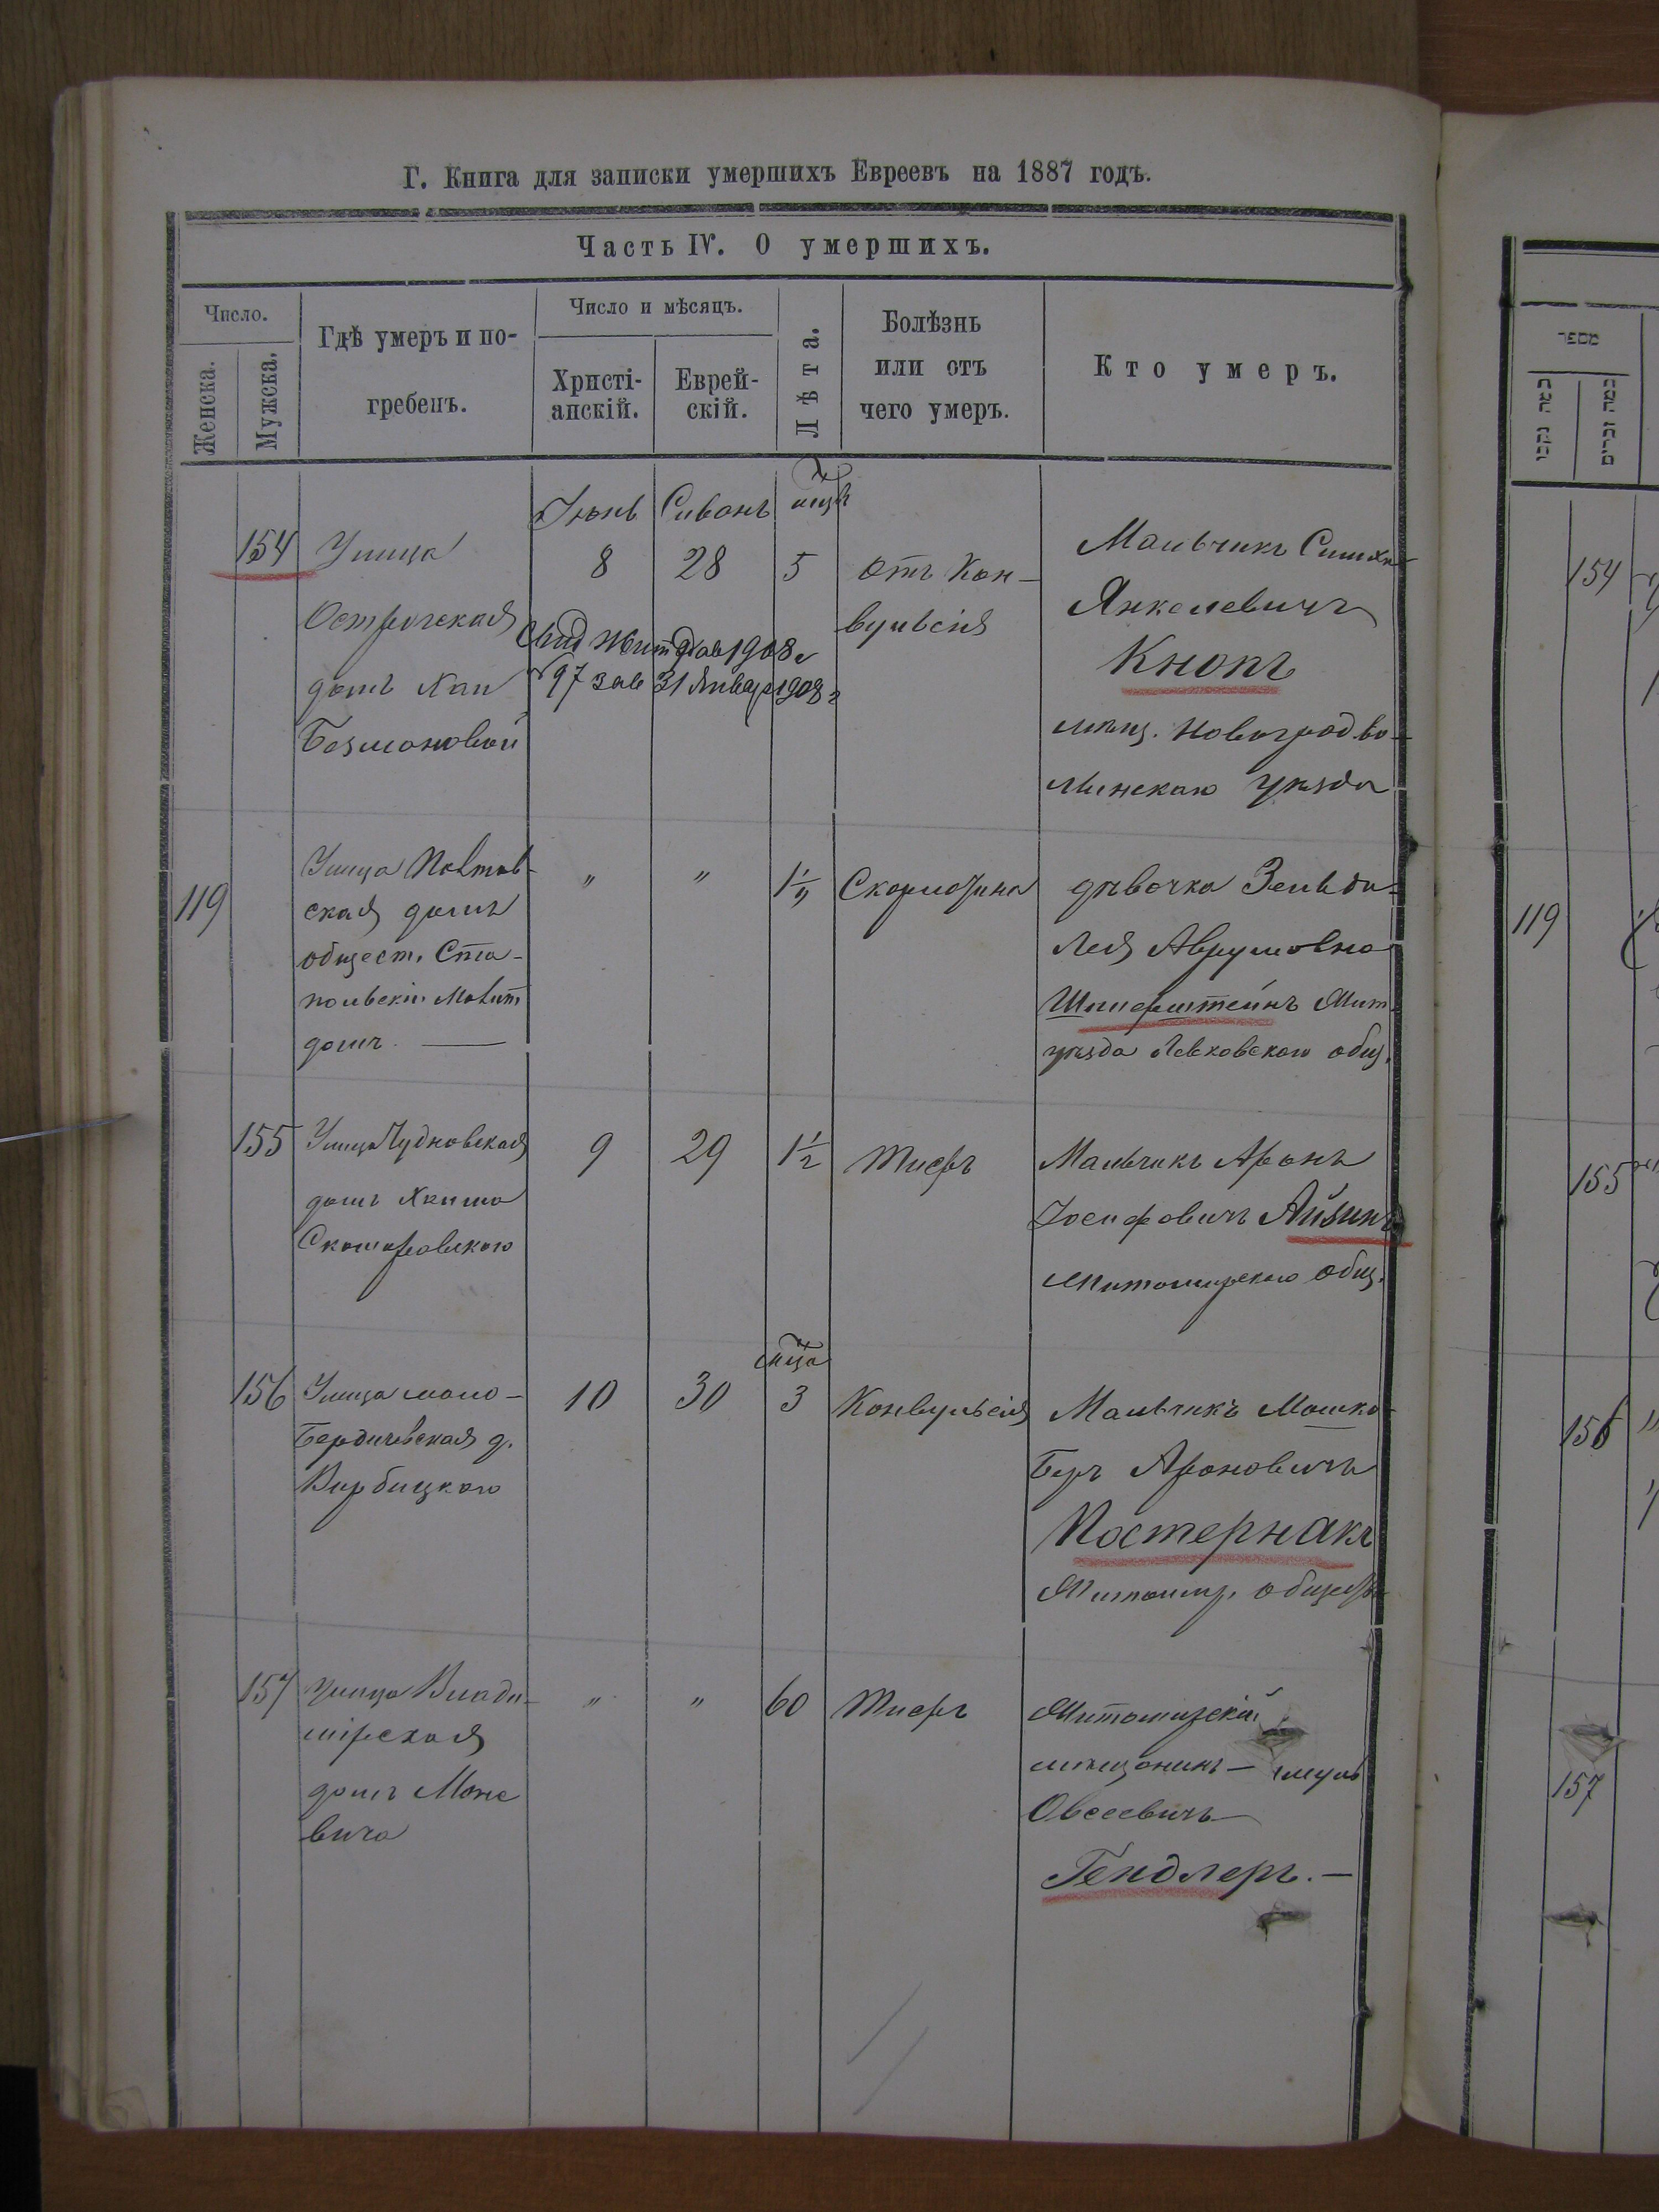 Г. Книга для записки умершихъ Евреевъ на 1887 годъ.
Часть IV. О умершихъ.
Число.
Женска.
Мужска.
Гдѣ умеръ и по-
гребенъ.
Число и мѣсяцъ.
Христі-
анскій.
Еврей-
скій.
Лѣта.
Болѣзнь
или отъ
чего умеръ.
Кто умеръ.
154
Улица
Острогская
домъ Хаи
Іюнь
8
Сиванъ
28
5
отъ Кон-
вульсія
97 31 Январ 1908 г
Мальчикъ
Янкелевичъ
Кнопъ
мѣщ. Новоградво-
линскаго уѣзда
119
Улица Полтав-
ская домъ
общест.
домъ
"
"
Скарлатина
дѣвочка Зельда-
Лея Аврумовна
Шпиерштейнъ Жит.
уѣзда Левковскаго общ.
155
Улица Чудновская
домъ Хаима
9
29
1½
Тифъ
Мальчикъ Аронъ
Іосифовичъ Айзинъ
Житомирскаго общ.
156
Улица мало-
Бердичевская д.
Вербицкаго
10
30
мѣца
3
Конвульсія
Мальчикъ Мошко-
Беръ Ароновичъ
Постернакъ
Житомир. общест
157
улица Влади-
мірская
домъ Може
вича
"
"
60
Тифъ
Житомирскій
мѣщанинъ-
Овсеевичъ
Гендлеръ. —
מספר
כמה נקבו
כמה זכרים
154
119
155
156
157